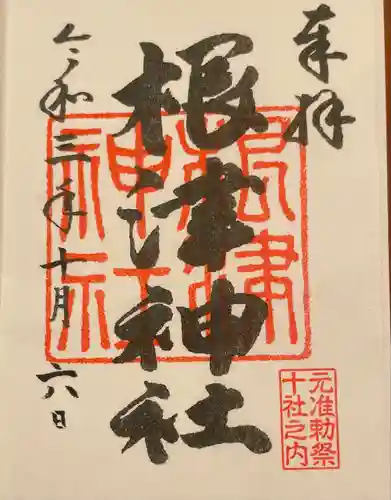 奉拝
根津神社
根津
神社
元准勅祭
十社之内
令和三年十月六日